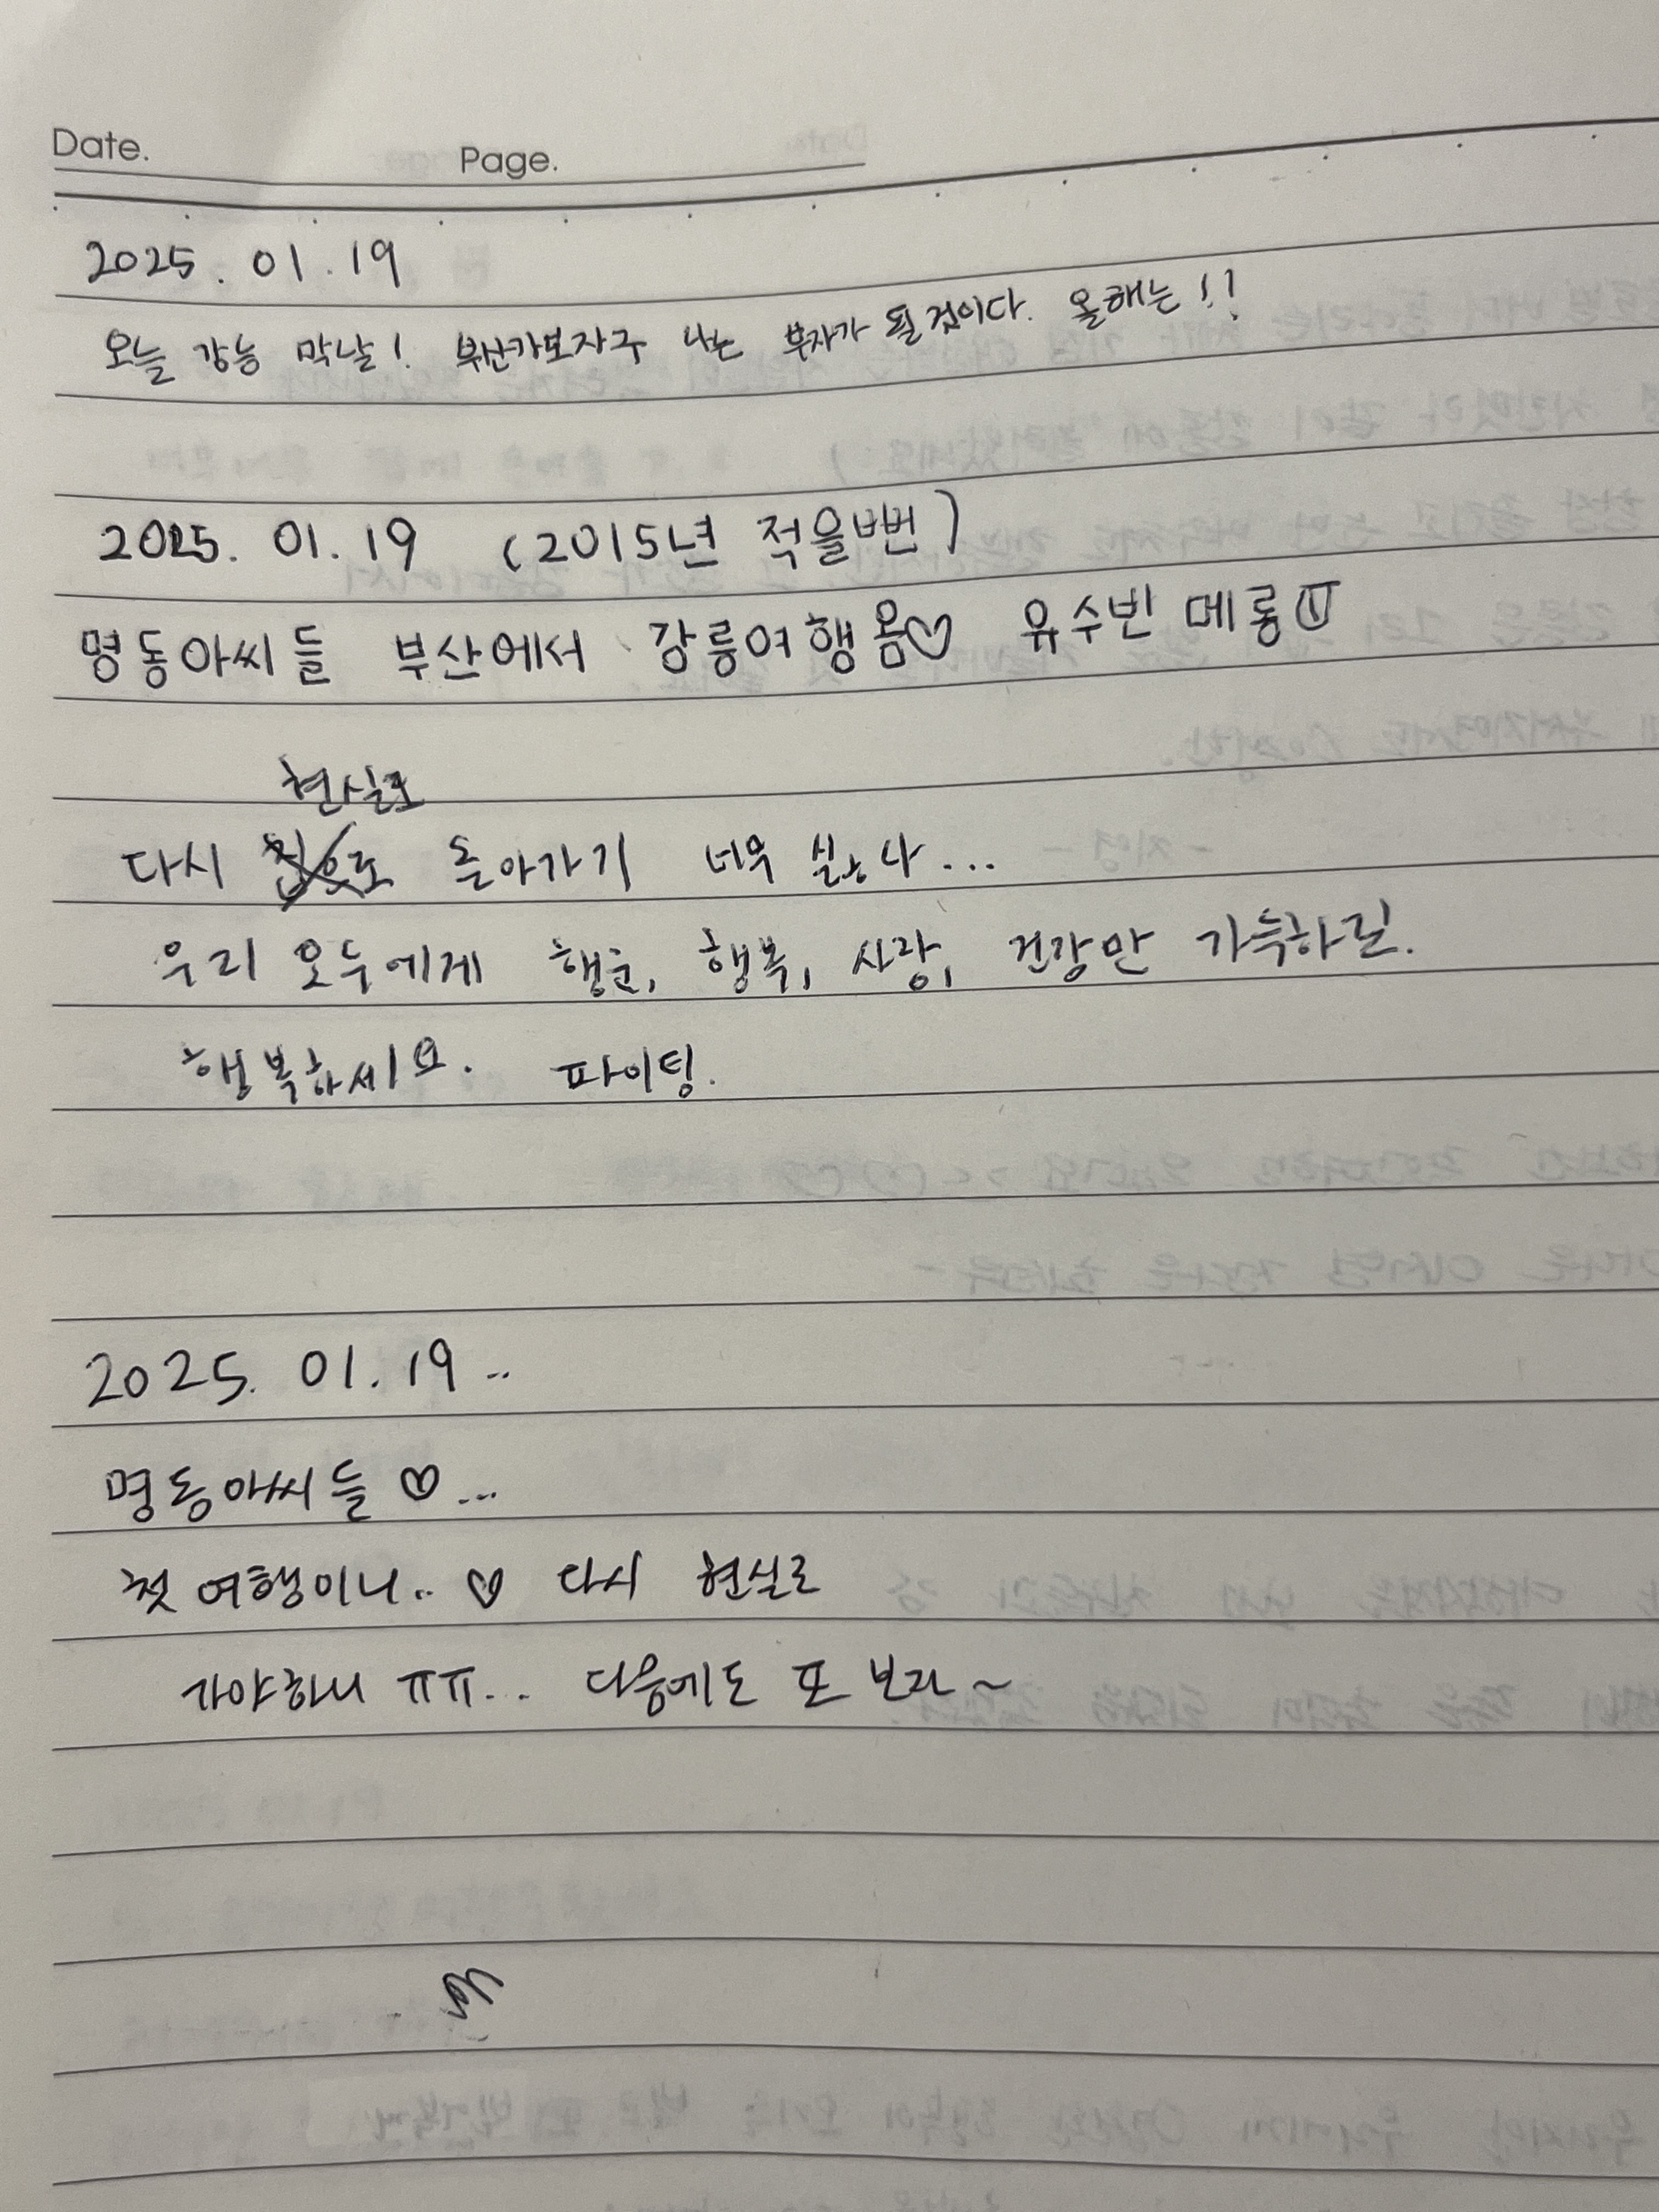 Date.
Page.
2025. 01. 19
오늘 강능 막날! 부산가보자구 나는 부자가 될것이다. 올해는!!
2025. 01. 19 (2015년 적을뻔)
명동아씨들 부산에서 강릉여행옴♡ 유수빈 메롱
현실로
다시 집으로 돌아가기 너무 싫으나...
우리 모두에게 행운, 행복, 사랑, 건강만 가득하길.
행복하세요. 파이팅.
2025. 01. 19..
명동아씨들 ♡...
첫 여행이니.. ♡ 다시 현실로
가야하니 ㅠㅠ... 다음에도 또 보자~